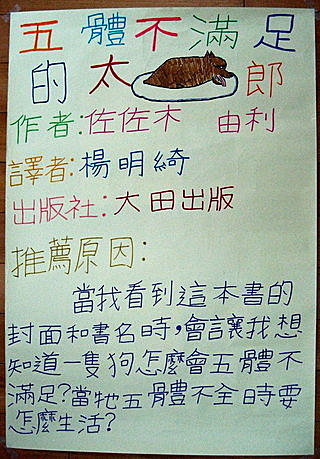 五體不滿足
的太郎
作者:佐佐木 由利
譯者:楊明綺
出版社:大田出版
推薦原因:
當我看到這本書的
封面和書名時,會讓我想
知道一隻狗怎麼會五體不
滿足?當牠五體不全時要
怎麼生活?